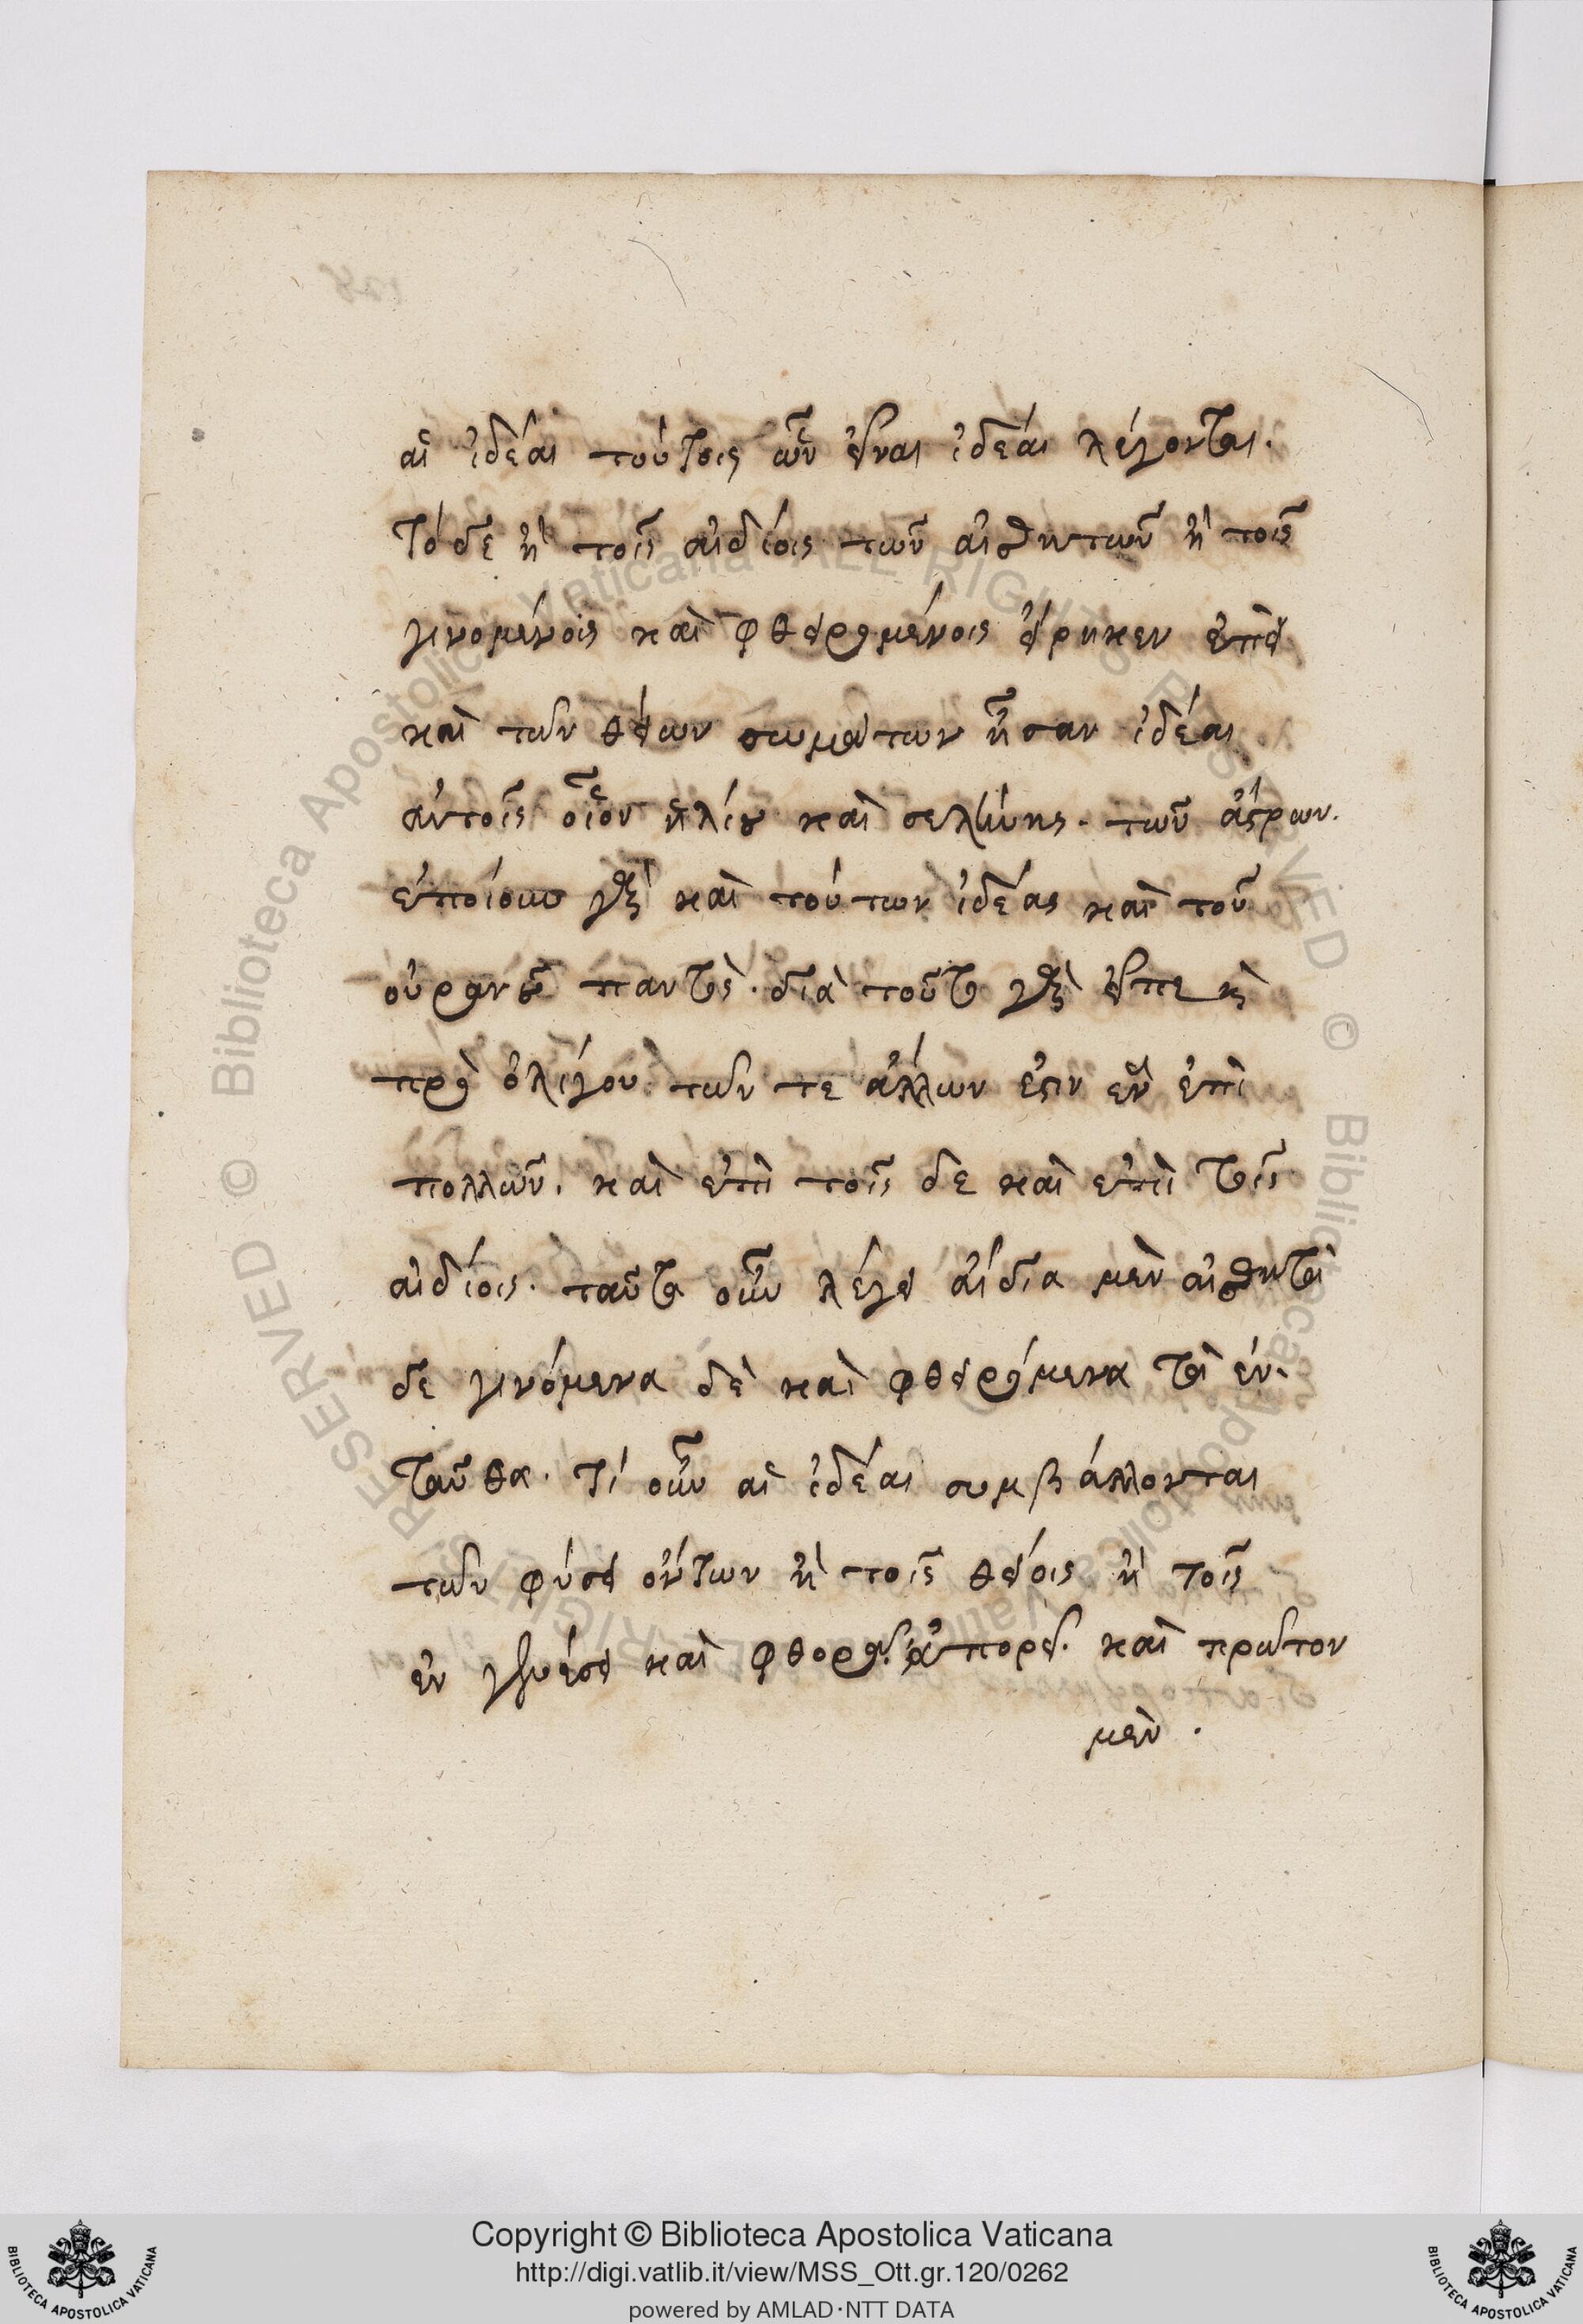 αἱ ἰδέαι τούτοις ὧν εἶναι ἰδέαι λέγονται.
τό δε ἢ τοῖς αἰδίοις τῶν αἰσθητῶν ἢ τοῖς
γινομένοις καὶ φθειρομένοις εἴρηκεν ἐπεὶ
καὶ τῶν θείων σωμάτων ἦσαν ἰδέαι
αὐτοῖς οἷον ἡλίου καὶ σελήνης. τῶν ἄστρων.
ἐποίουν γὰρ καὶ τούτων ἰδέας καὶ τοῦ
οὐρανοῦ παντὸς. διὰ τοῦτο γὰρ εἶπε καὶ
πρὸ ὀλίγου τῶν τε ἄλλων ἐστιν ἓν ἐπὶ
πολλῶν. καὶ ἐπὶ τοῖς δε καὶ ἐπὶ τοῖς
αἰδίοις. ταῦτα οὖν λέγει ἀΐδια μὲν αἰσθητὰ
δε γινόμενα δὲ καὶ φθειρόμενα τὰ ἐν-
ταῦθα. τί οὖν αἱ ἰδέαι συμβάλλονται
τῶν φύσει ὄντων ἢ τοῖς θείοις ἢ τοῖς
ἐν γενέσει καὶ φθορᾷ ἀπορεῖ. καὶ πρῶτον
μὲν.
Copyright © Biblioteca Apostolica Vaticana
http://digi.vatlib.it/view/MSS_Ott.gr.120/0262
powered by AMLAD·NTT DATA
BIBLIOTECA APOSTOLICA VATICANA
BIBLIOTECA APOSTOLICA VATICANA
© Biblioteca Apostolica Vaticana ALL RIGHTS RESERVED
© Biblioteca Apostolica Vaticana ALL RIGHTS RESERVED